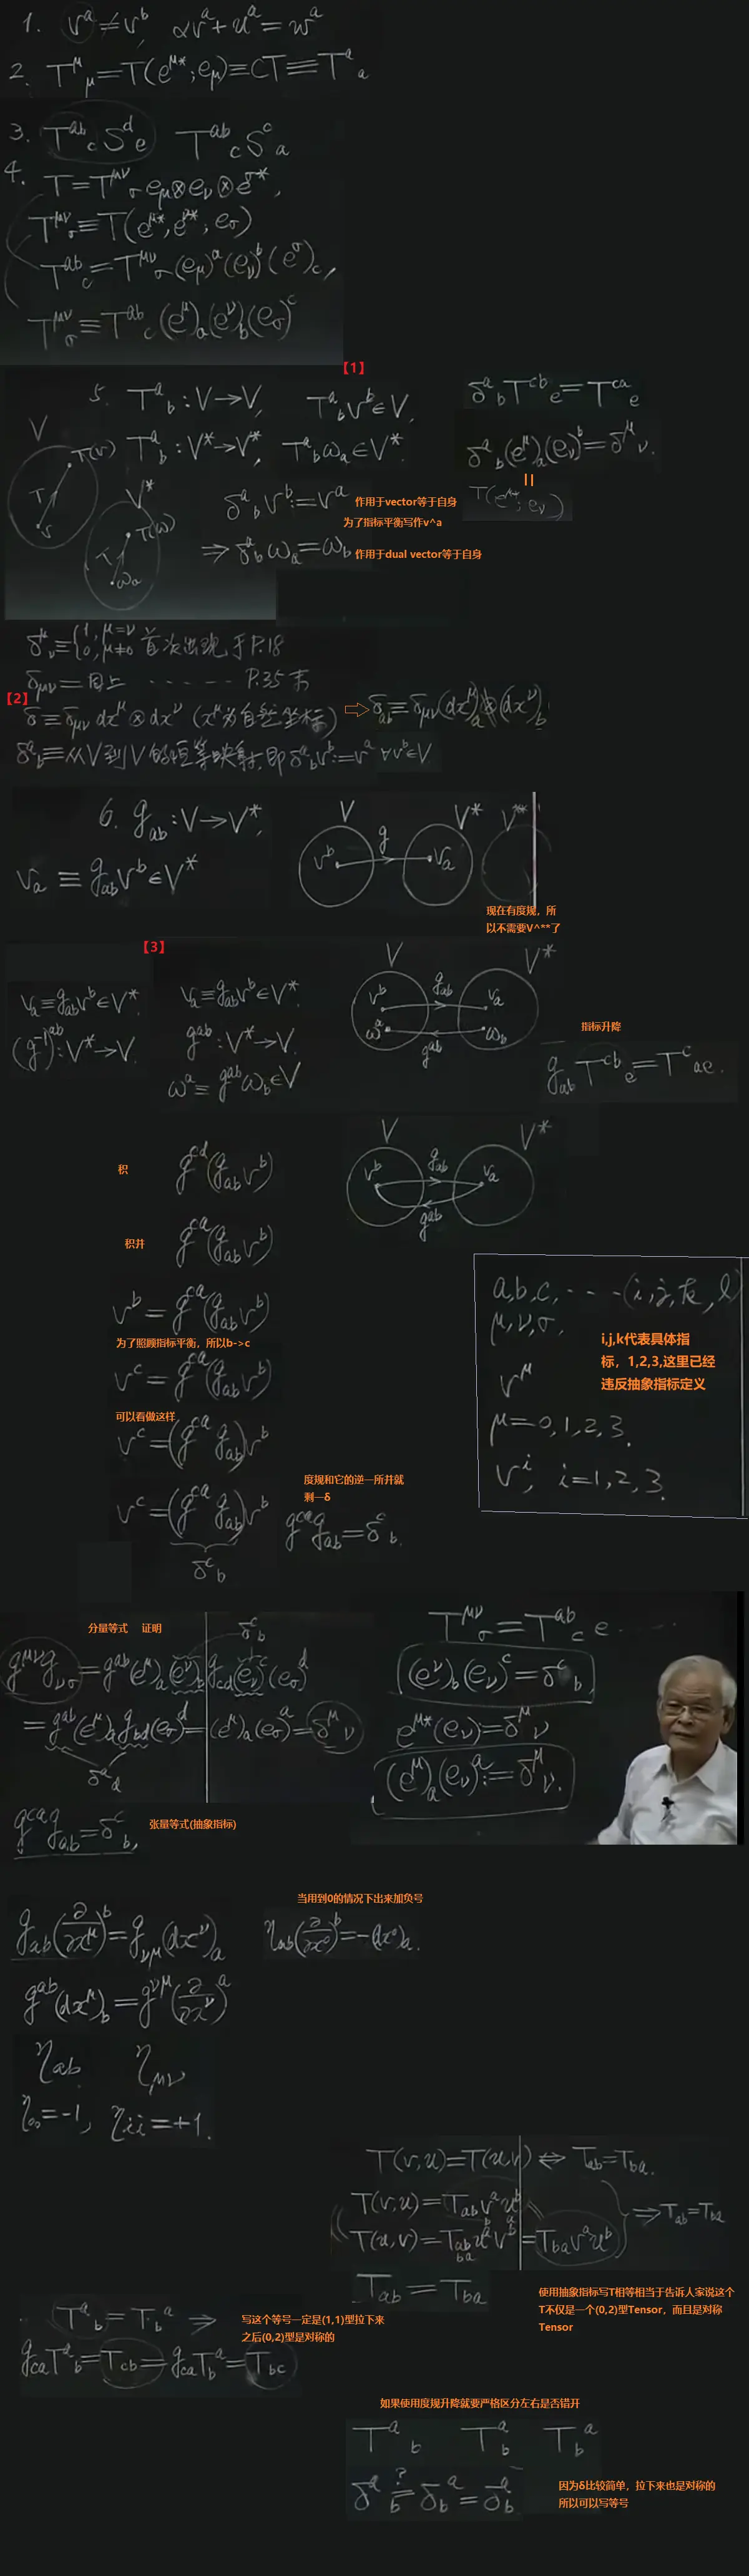 1. v^a ≠ v^b, αv^a + u^a = w^a
2. T^μ_μ = T(e^{μ*}; e_μ) ≡ CT ≡ T^a_a
3. T^{ab}_c S^d_e T^{ab}_c S^c_a
4. T = T^{μν}_σ e_μ ⊗ e_ν ⊗ e^{σ*},
T^{μν}_σ ≡ T(e^{μ*}, e^{ν*}; e_σ)
T^{ab}_c = T^{μν}_σ (e_μ)^a (e_ν)^b (e^σ)_c,
T^{μν}_σ ≡ T^{ab}_c (e^μ)_a (e^ν)_b (e_σ)^c
【1】
5. T^a_b : V → V, T^a_b v^b ∈ V, δ^a_b T^{cb}_e = T^{ca}_e
V T(v) T^a_b : V* → V*, T^a_b ω_a ∈ V*. δ^a_b (e^μ)_a (e_ν)^b = δ^μ_ν.
T V* T(ω) T ω_a
δ^a_b v^b := v^a 作用于vector等于自身
T(e^{μ*}; e_ν)
为了指标平衡写作v^a
⇒ δ^a_b ω_a = ω_b 作用于dual vector等于自身
δ^μ_ν ≡ {1, μ=ν 0, μ≠ν 首次出现于P.18
δ_{μν} = 同上 ······ P.35 末
【2】
δ ≡ δ_{μν} dx^μ ⊗ dx^ν (x^μ为自然坐标) ⇨ δ_{ab} ≡ δ_{μν} (dx^μ)_a ⊗ (dx^ν)_b
δ^a_b ≡ 从V到V的恒等映射, 即 δ^a_b v^b := v^a ∀v^b∈V
6. g_{ab} : V → V*, V V* V**
v_a ≡ g_{ab} v^b ∈ V* v^b g v_a
现在有度规，所
以不需要V^**了
【3】
v_a ≡ g_{ab} v^b ∈ V*. v_a ≡ g_{ab} v^b ∈ V*. V V* v^b g_{ab} v_a
(g^{-1})^{ab} : V* → V. g^{ab} : V* → V. ω^a g^{ab} ω_b
ω^a ≡ g^{ab} ω_b ∈ V
指标升降
g_{ab} T^{cb}_e = T^c_{ae}.
积 g^{cd}(g_{ab} v^b) V V* v^b g_{ab} v_a g^{ab}
积并 g^{ca}(g_{ab} v^b)
v^b = g^{ca}(g_{ab} v^b)
为了照顾指标平衡，所以b->c
v^c = g^{ca}(g_{ab} v^b)
可以看做这样
v^c = (g^{ca} g_{ab}) v^b
v^c = (g^{ca} g_{ab}) v^b
δ^c_b
度规和它的逆一所并就
剩一δ
g^{ca} g_{ab} = δ^c_b.
a,b,c,···(i,j,k,l)
μ,ν,σ,
i,j,k代表具体指
标，1,2,3,这里已经
违反抽象指标定义
v^μ
μ=0,1,2,3.
v^i, i=1,2,3.
分量等式 证明
δ^c_b
g^{μν} g_{νσ} = g^{ab} (e^μ)_a (e^ν)_b g_{cd} (e_ν)^c (e_σ)^d
= g^{ab} (e^μ)_a g_{bd} (e_σ)^d = (e^μ)_a (e_σ)^a = δ^μ_ν
δ^a_d
T^{μν}_σ = T^{ab}_c e ······
(e^ν)_b (e_ν)^c = δ^c_b,
e^{μ*}(e_ν) = δ^μ_ν
(e^μ)_a (e_ν)^a := δ^μ_ν.
g^{ca} g_{ab} = δ^c_b,
张量等式(抽象指标)
当用到0的情况下出来加负号
g_{ab} (∂/∂x^μ)^b = g_{νμ} (dx^ν)_a η_{ab} (∂/∂x^0)^b = -(dx^0)_a.
g^{ab} (dx^μ)_b = g^{νμ} (∂/∂x^ν)^a
η_{ab} η_{μν}
η_{00} = -1, η_{ii} = +1.
T(v,u) = T(u,v) ⇔ T_{ab} = T_{ba}.
T(v,u) = T_{ab} v^a u^b
T(u,v) = T_{ab} u^a v^b = T_{ba} v^a u^b ⇒ T_{ab} = T_{ba}
ba b a
T_{ab} = T_{ba}
使用抽象指标写T相等相当于告诉人家说这个
T不仅是一个(0,2)型Tensor，而且是对称
Tensor
T^a_b = T_b^a ⇒
写这个等号一定是(1,1)型拉下来
之后(0,2)型是对称的
g_{ca} T^a_b = T_{cb} = g_{ca} T_b^a = T_{bc}
如果使用度规升降就要严格区分左右是否错开
T^a_b T^a_b T_b^a
δ^a_b ?= δ_b^a = δ^a_b
因为δ比较简单，拉下来也是对称的
所以可以写等号